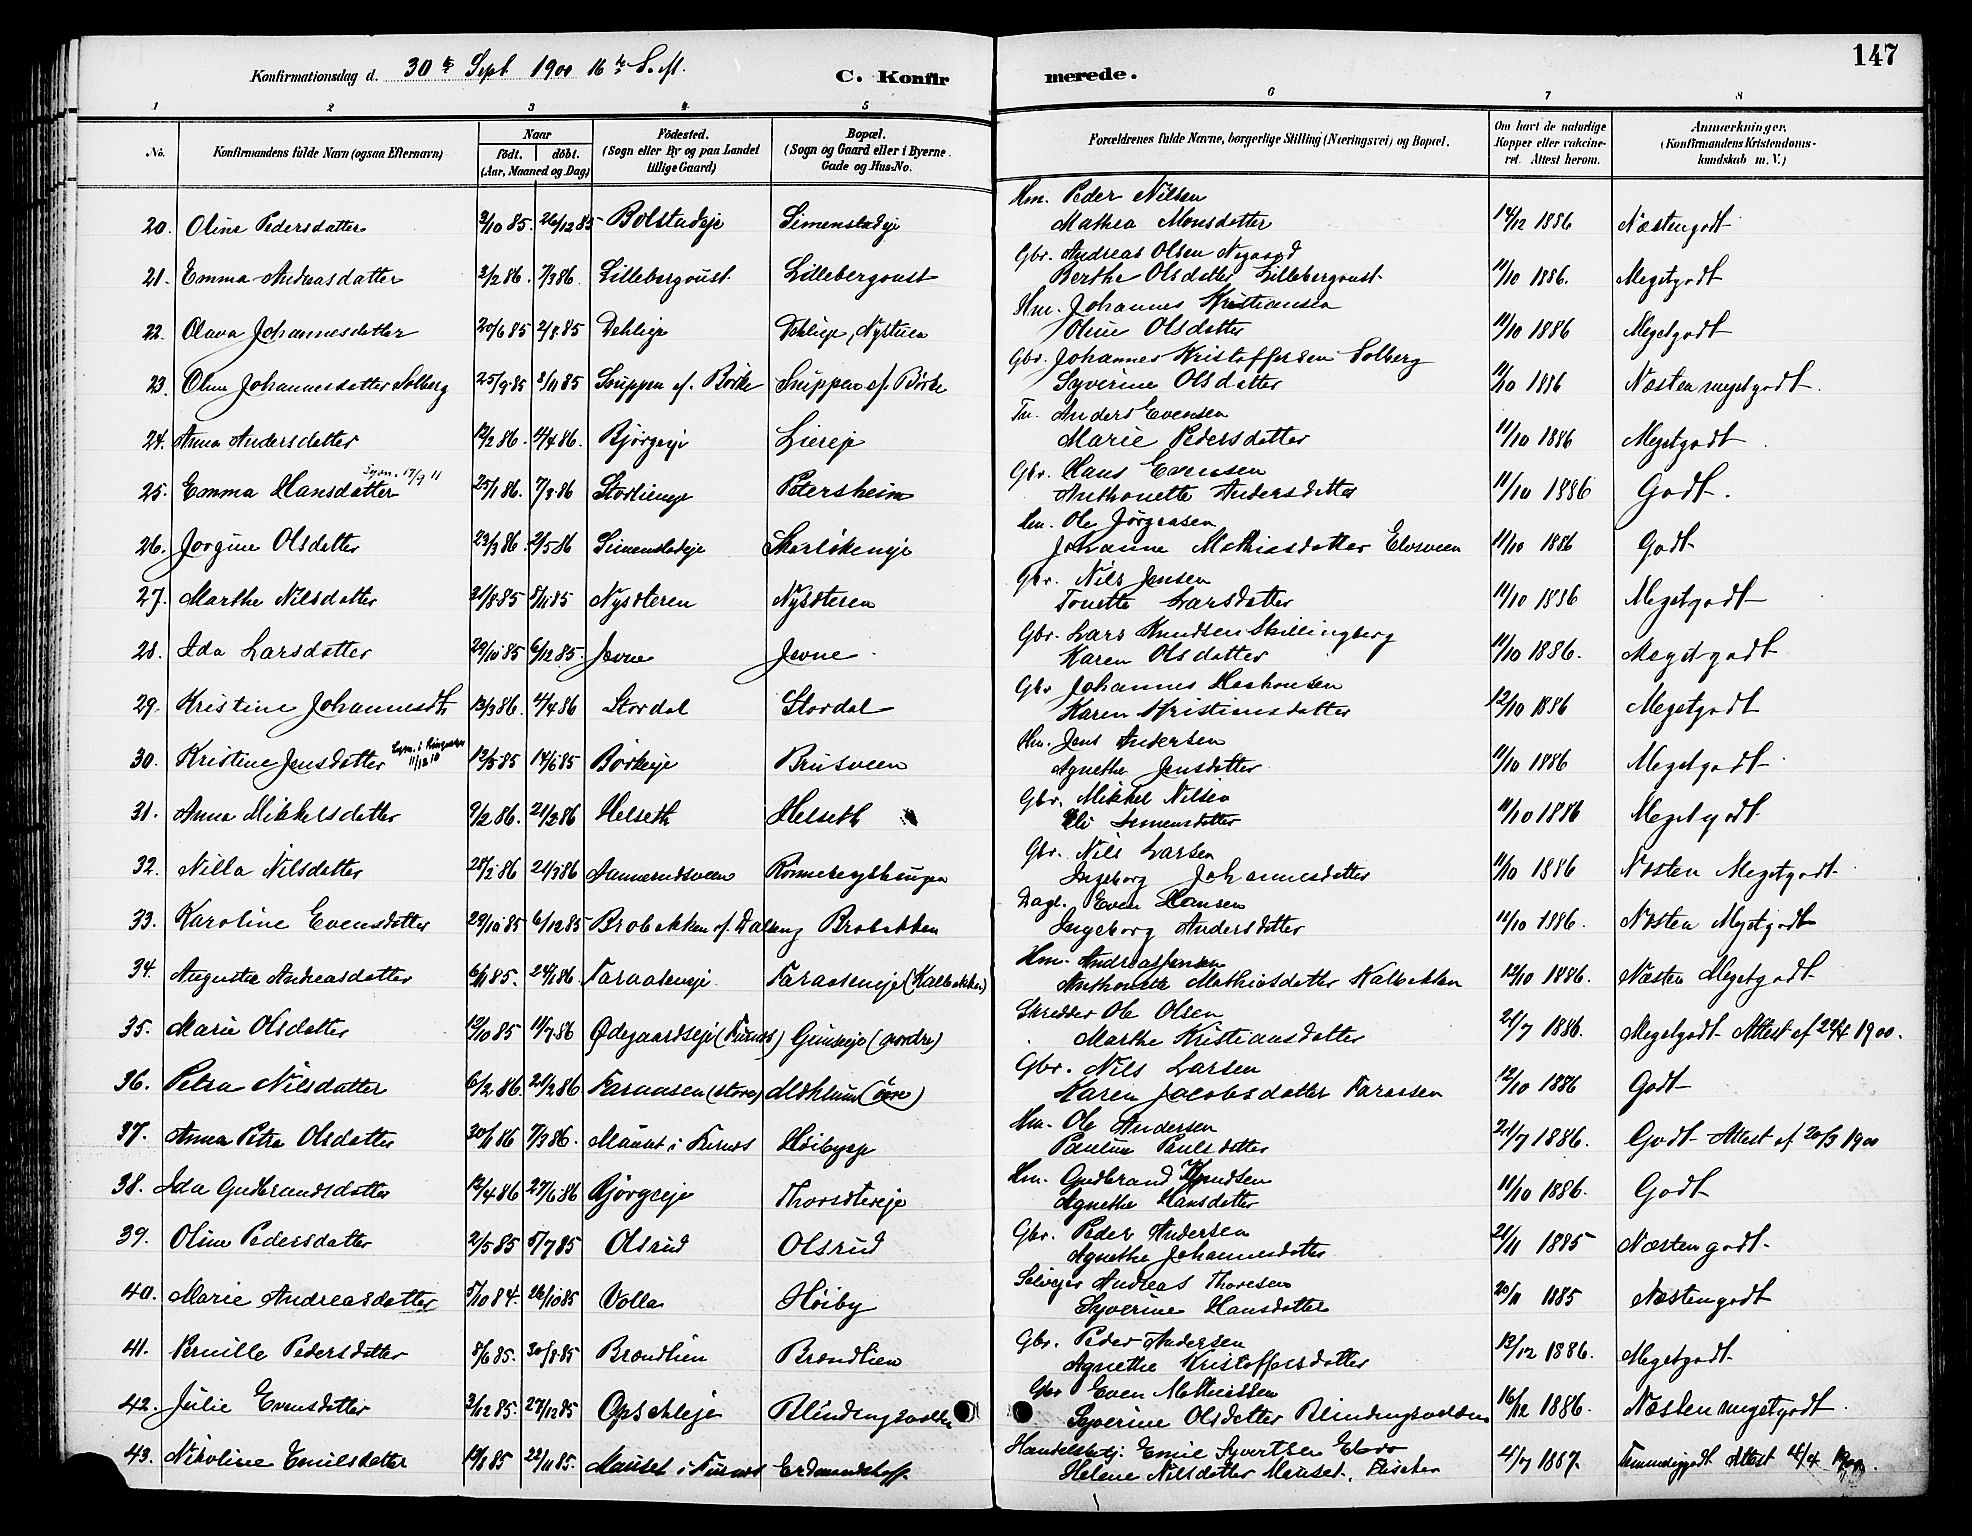 147
Konfirmationsdag d. 30te Sept 1900 16de S. e. Tr.
C. Konfirmerede.
1 2 3 4 5 6 7 8
No. Konfirmandens fulde Navn (ogsaa Efternavn) Naar Födt. döbt. (Aar, Maaned og Dag) Födested. (Sogn eller By og paa Landet tillige Gaard) Bopæl. (Sogn og Gaard eller i Byerne Gade og Hus-No. Forældrenes fulde Navne, borgerlige Stilling (Næringsvei) og Bopæl. Om havt de naturlige Kopper eller vakcineret. Attest herom. Anmærkninger. (Konfirmandens Kristendomskundskab m. V.)
Hm. Peder Nilsen
20. Oline Pedersdatter 3/10 85. 26/12 85 Bolstadeje Simenstadeje Mathea Monsdatter 14/12 1886 Næstengodt
Gbr. Andreas Olsen Nygaard
21. Emma Andreasdatter 3/2 86. 7/3 86. Lillebergoust Lillebergoust Berthe Olsdatter Lillebergoust. 11/10 1886. Megetgodt
Hm. Johannes Kristiansen
22. Olava Johannesdatter 20/6 85 2/8 85 Dehleje Dehleje, Nystuen Oline Olsdatter 11/10 1886 Megetgodt
Gbr. Johannes Kristoffersen Solberg
23. Oline Johannesdatter Solberg 25/9 85 1/11 85 Snippen af Börke Snippen af Börke Syverine Olsdatter 12/10 1886 Næsten megetgodt.
Tn. Anders Evensen
24. Anna Andersdatter 12/2 86. 11/4 86. Bjørgeje Liereje Marie Pedersdatter 11/10 1886 Megetgodt
Gbr. Hans Evensen
25. Emma Hansdatter 17/9 11 25/1 86. 7/3 86 Storlienge Petersheim Anthonette Andersdatter 11/10 1886 Godt.
Hm. Ole Jørgensen
26. Jorgine Olsdatter 23/3 86. 2/5 86 Simenstadeje Skarlökeneje Johanne Mathiasdatter Elvsveen 11/10 1886 Godt
Gbr. Nils Jensen
27. Marthe Nilsdatter 21/8 85 8/11 85 Nysæteren Nysæteren Tonette Larsdatter 11/10 1886 Megetgodt
Gbr. Lars Knudsen Skillingberg
28. Ida Larsdatter 29/10 85 6/12 85. Jevne Jevne Karen Olsdatter 11/10 1886. Megetgodt
Gbr Johannes Haakonsen
29. Kristine Johannesdt. 13/3 86. 11/4 86 Stordal Stordal Karen Kristiansdatter 12/10 1886 Megetgodt
Hm. Jens Andersen
30. Kristine Jensdatter 11/12 10 12/5 85 14/6 85 Börkeje Brusveen Agnethe Jensdatter 11/10 1886 Megetgodt
Gbr. Mikkel Nilsen
31. Anna Mikkelsdatter 9/2 86. 21/3 86 Helseth Helseth Eli Simensdatter 11/10 1886 Megetgodt
Gbr. Nils Larsen
32. Nilla Nilsdatter 28/1 86 21/3 86 Aannerudsveen Rönnebergshaugen Ingeborg Johannesdatter 11/10 1886 Næsten Megetgodt
Dagl. Even Hansen
33. Karoline Evensdatter 29/10 85 6/12 85 Brobakken af Dalseng Brobakken Ingeborg Andersdatter 11/10 1886. Næsten Megetgodt
Hm. Andreas Jensen
34. Augusta Andreasdatter 6/11 85. 24/1 86. Faraaseneje Faraaseneje (Kalbakken) Anthonette Mathiasdatter Kalbakken 12/10 1886. Næsten Megetgodt
Skredder Ole Olsen
35. Marie Olsdatter 12/10 85 11/7 86 Ødegaardseje (Furnes) Gimseje (nordre) Marthe Kristiansdatter 21/7 1886. Megetgodt Attest af 22/4 1900.
Gbr. Nils Larsen
36. Petra Nilsdatter 6/2 86. 21/2 86 Faraasen (store) Mæhlum (övre) Karen Jacobsdatter Faraasen 12/10 1886 Godt
Hm. Ole Andersen
37. Anna Petra Olsdatter 30/1 86 7/3 86. Mauset i Furnes Höibyeje Pauline Paulsdatter 21/7 1886. Godt Attest af 20/3 1900
Hm. Gudbrand Knudsen
38. Ida Gudbrandsdatter 12/4 86 27/6 86 Bjørgeje Thorsæteeje Agnethe Hansdatter 11/10 1886. Godt
Gbr. Peder Andersen
39. Oline Pedersdatter 2/5 85 5/7 85 Olsrud Olsrud Agnethe Johannesdatter 21/11 1885 Næstengodt
Selvejer Andreas Thoresen
40. Marie Andreasdatter 5/10 84. 26/10 85 Volla Höiby Syverine Hansdatter 20/11 1885 Næstengodt
Gbr. Peder Andersen
41. Pernille Pedersdatter 8/6 85. 30/8 85 Brændlien Brændlien Agnethe Kristoffersdatter 13/12 1886. Megetgodt
Gbr Even Mathiassen
42. Julie Evensdatter 3/12 85. 27/12 85 Opsahleje Blindingsvolden Syverine Olsdatter Blindingsvolden 16/12 1886. Næsten megetgodt.
Handelsbetj: Emil Syvertsen Elvro
43. Nikoline Emilsdatter 19/8 85 22/11 85. Mauset i Furnes Erdmundshoff Helene Nilsdatter Mauset, Fischer 5/7 1887. Temmeliggodt Attest 4/4 1900.